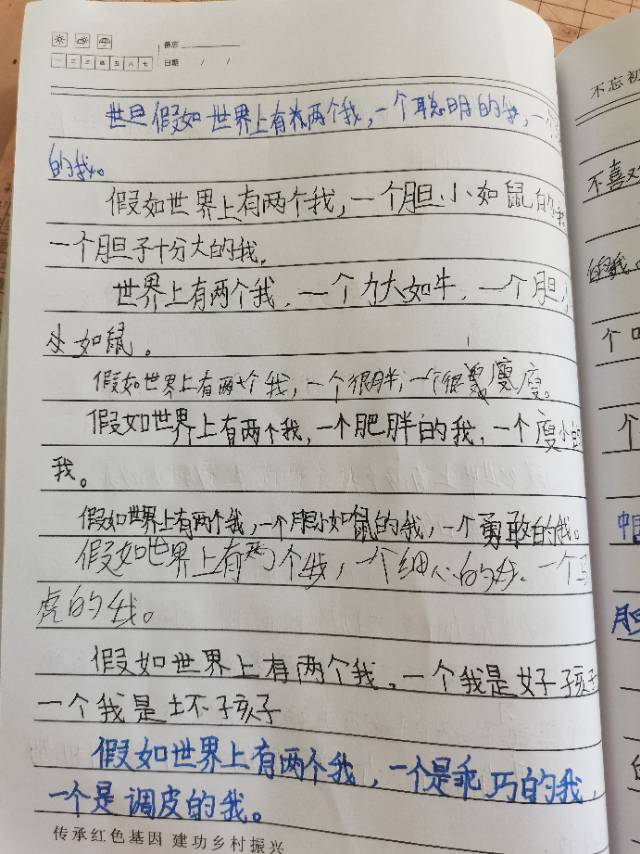 备忘
一 二 三 四 五 六 七 日期 / /
世界假如世界上有两个我，一个聪明的我，一个
的我。
假如世界上有两个我，一个胆小如鼠的我
一个胆子十分大的我。
世界上有两个我，一个力大如牛，一个胆小
如鼠。
假如世界上有两个我，一个很胖，一个很
假如世界上有两个我，一个肥胖的我，一个小的
我。
假如世界上有两个我，一个胆小如鼠的我，一个勇敢的我。
假如世界上有两个我，一个细心的我、一个马
虎的我。
假如世界上有两个我，一个我是好孩子
一个我是坏孩子
假如世界上有两个我，一个是乖巧的我，
一个是调皮的我。
传承红色基因 建功乡村振兴
不忘初
不喜欢
的我
个
个
中国
胆
的